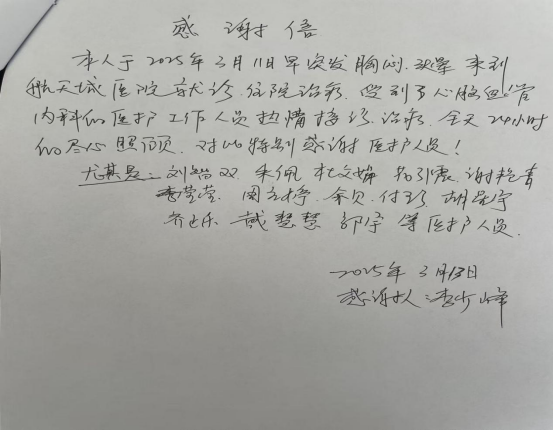 感谢信
本人于2025年3月11日早次发胸闷.到
航天城医院就诊.住院治疗.受到了心脑血管
内科的医护工作人员热情接诊.治疗.全天24小时
的尽心照顾.对此特别感谢医护人员!
尤其是:刘智双 朱佩 杜文娟 杨引霞.谢艳青
李莹莹.周文婷.余贝.付珍.胡晨宇
乔 乐 戴慧慧 郭宇等医护人员.
2025年3月13日
感谢人:李少峰